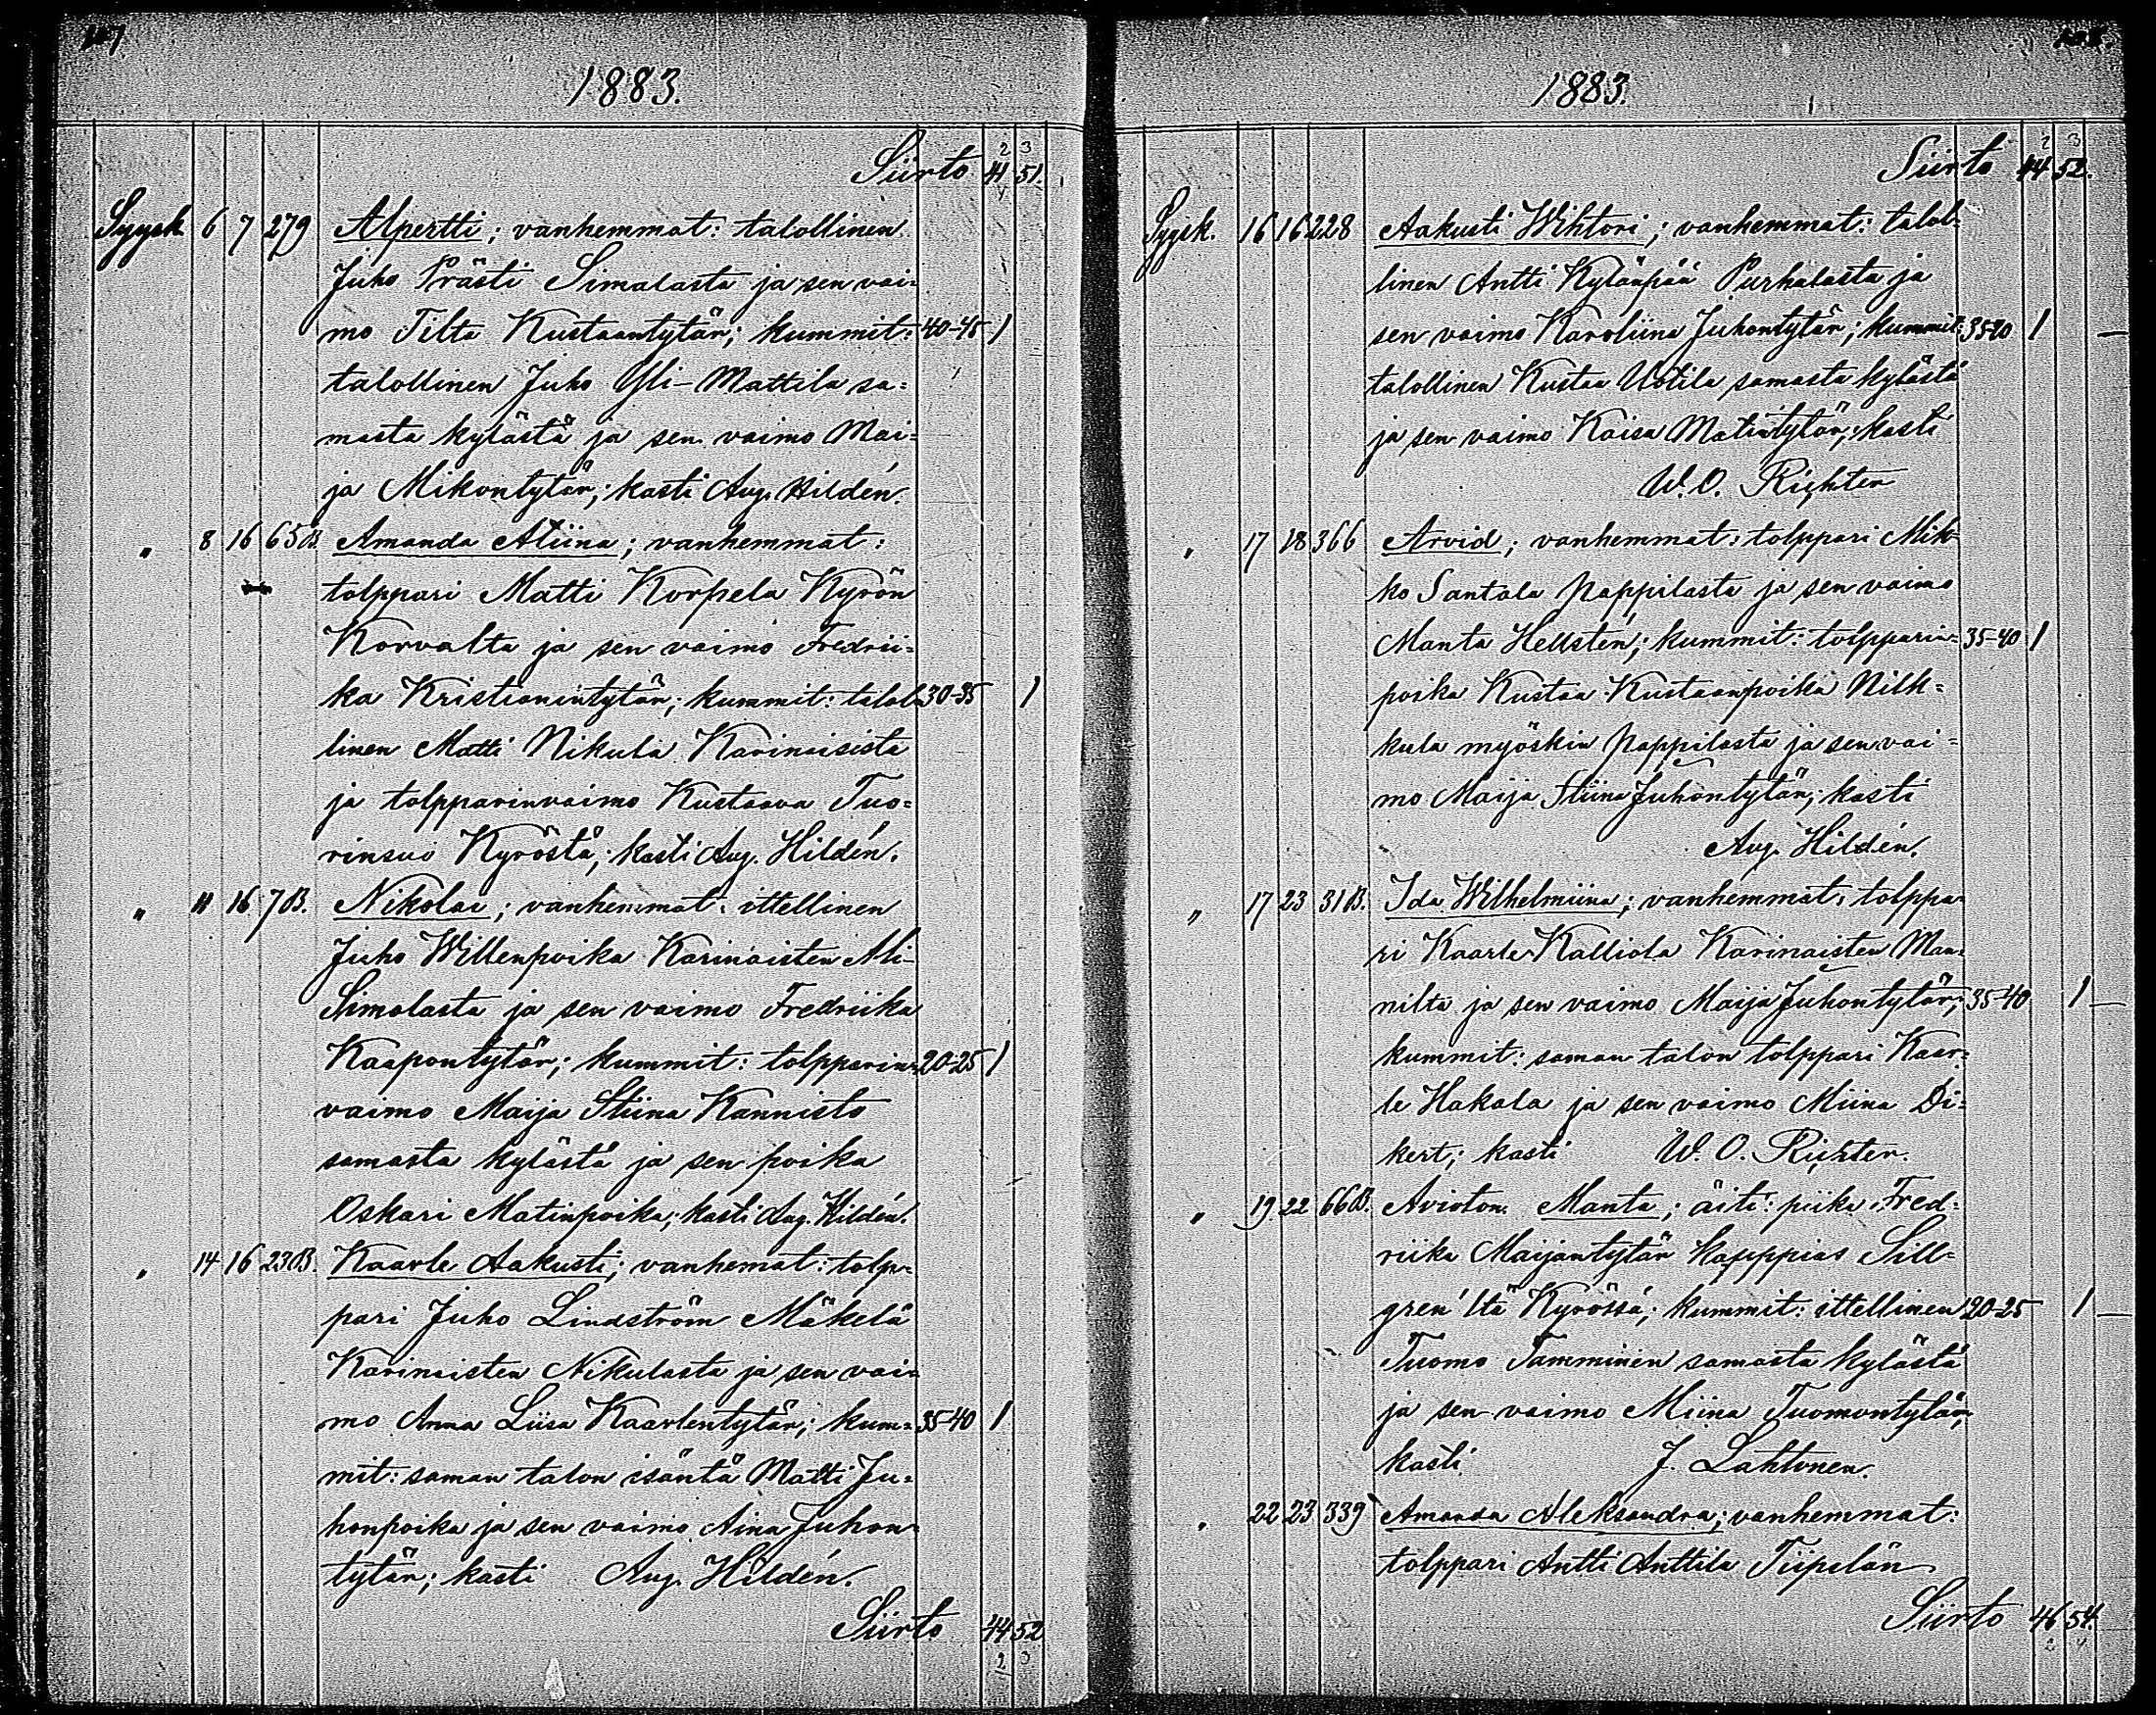 1883.
Siirto 41 51.
2 3
Syysk. 6 7 279 Alpertti; vanhemmat: talollinen
Juho Prästi Simalasta ja sen vai=
mo Tilta Kustaantytär; kummit: 40-45 1
talollinen Juho Yli-Mattila sa=
masta kylästä ja sen vaimo Mai=
ja Mikontytär; kasti Aug. Hildén.
" 8 16 65B. Amanda Aliina; vanhemmat:
tolppari Matti Korpela Kyrön
Korvalta ja sen vaimo Fredrii=
ka Kristianintytär; kummit: talol= 30-35 1
linen Matti Nikula Karinaisista
ja tolpparinvaimo Kustaava Tuo=
rinsuo Kyröstä; kasti Aug. Hildén.
" 11 16 7B. Nikolai; vanhemmat: ittellinen
Juho Willenpoika Karinaisten Ali-
Simolasta ja sen vaimo Fredriika
Kaapontytär; kummit: tolpparin= 20-25 1
vaimo Maija Stiina Kannisto
samasta kylästä ja sen poika
Oskari Matinpoika; kasti Aug. Hildén.
" 14 16 23B. Kaarle Aakusti; vanhemat: tolp=
pari Juho Lindström Mäkelä
Karinaisten Nikulasta ja sen vai=
mo Anna Liisa Kaarlentytär; kum= 35-40 1
mit: saman talon isäntä Matti Ju=
honpoika ja sen vaimo Aina Juhon=
tytär; kasti Aug. Hildén.
Siirto 44 52
2 3
1883.
2 3
Siirto 44 52.
Syysk. 16 16 228 Aakusti Wihtori; vanhemmat: talol=
linen Antti Kylänpää Purhalasta ja
sen vaimo Karoliina Juhontytär; kummit: 35-40 1
talollinen Kustaa Uotila samasta kylästä
ja sen vaimo Kaisa Matintytär; kasti
W. O. Richter
" 17 18 366 Arvid; vanhemmat: tolppari Mik=
ko Santala Pappilasta ja sen vaimo
Manta Hellstén; kummit: tolpparin= 35-40 1
poika Kustaa Kustaanpoika Nilk=
kula myöskin Pappilasta ja sen vai=
mo Maija Stiina Juhontytär; kasti
Aug. Hildén.
" 17 23 31B. Ida Wilhelmiina; vanhemmat: tolppa=
ri Kaarle Kalliola Karinaisten Man=
nilta ja sen vaimo Maija Juhontytär; 35-40 1
kummit: saman talon tolppari Kaar=
le Hakala ja sen vaimo Miina Di=
kert; kasti W. O. Richter.
" 19 22 66B. Avioton. Manta; äiti: piika Fred=
riika Maijantytär kauppias Sill=
gren'ltä Kyrössä; kummit: ittellinen 20-25 1
Tuomo Tamminen samasta kylästä
ja sen vaimo Miina Tuomontytär;
kasti J. Lahtonen.
" 22 23 339 Amanda Aleksandra; vanhemmat:
tolppari Antti Anttila Tiipilän
Siirto 46 54.